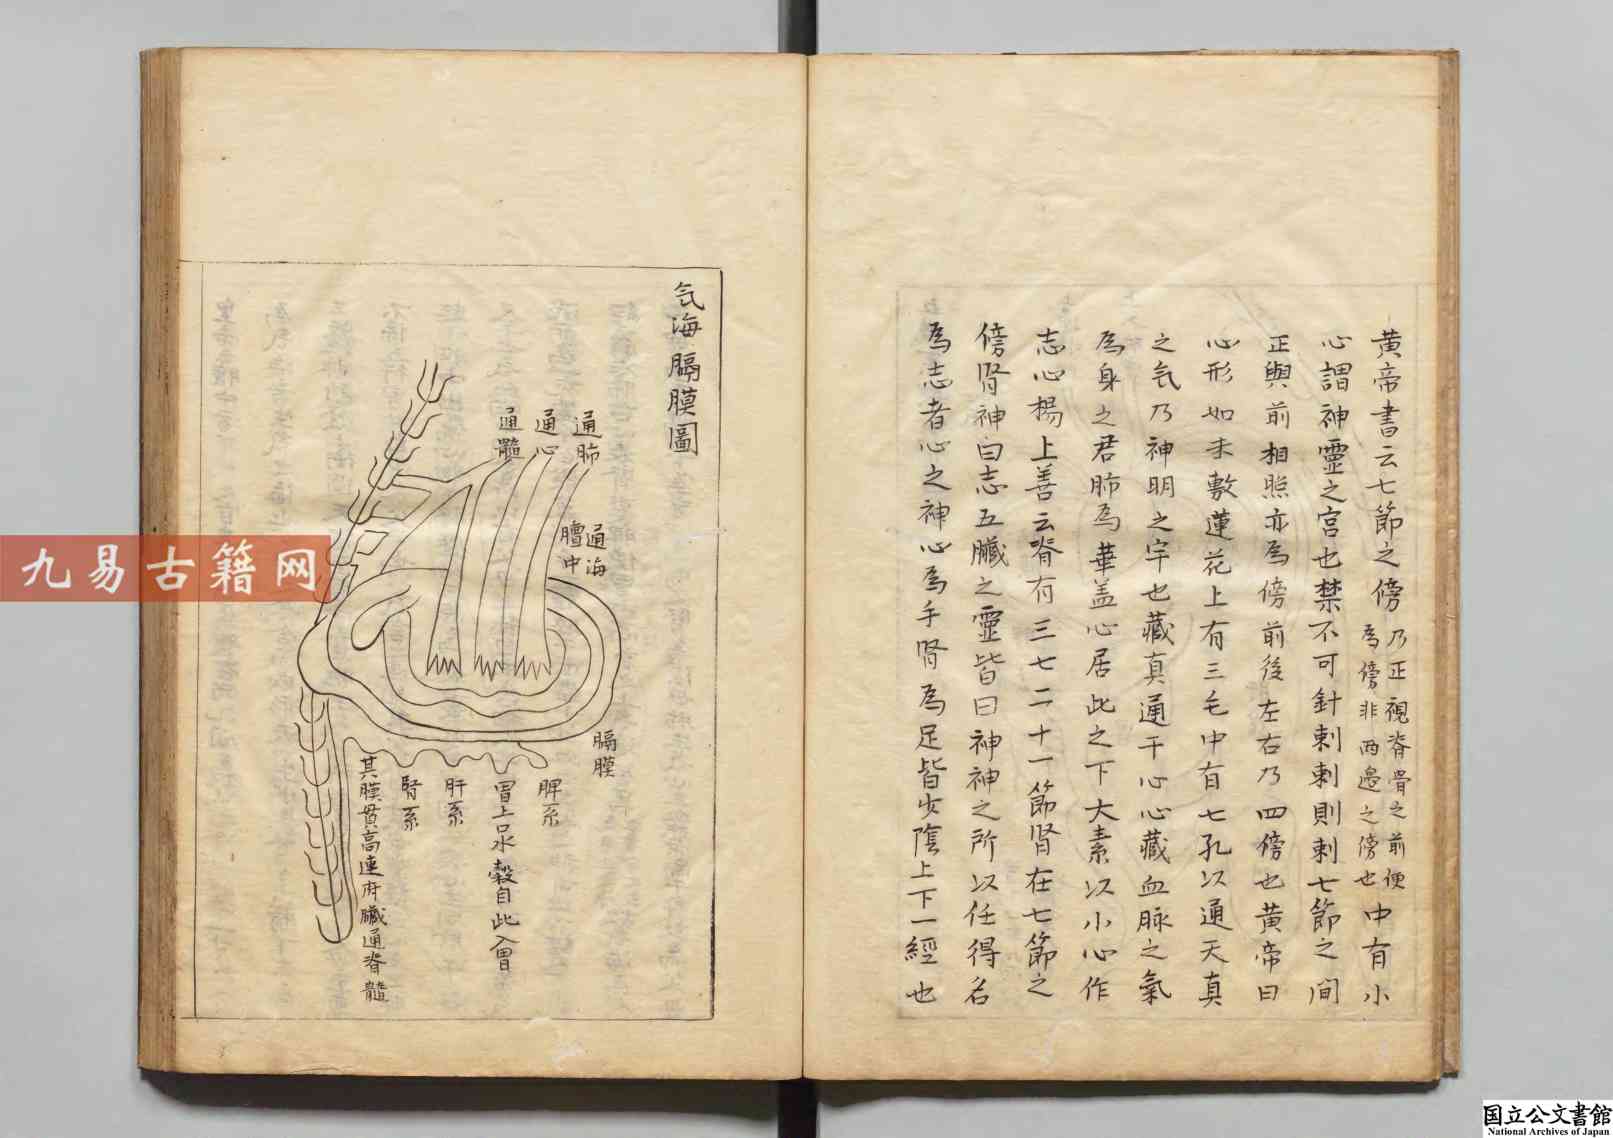 黃帝書云七節之傍乃正視脊骨之前便
為傍非兩邊之傍也中有小
心謂神靈之宮也禁不可針刺刺則刺七節之間
正與前相照亦為傍前後左右乃四傍也黃帝曰
心形如未敷蓮花上有三毛中有七孔以通天真
之気乃神明之宇也藏真通于心心藏血脉之氣
為身之君肺為華盖心居此之下大素以小心作
志心楊上善云脊有三七二十一節腎在七節之
傍腎神曰志五臟之靈皆曰神神之所以任得名
為志者心之神心為手腎為足皆少陰上下一經也
気海膈膜圖
通肺
通心
通髓
通海
膻中
膈膜
脾系
胃上口水穀自此入胃
肝系
腎系
其膜貫高連府臟通脊髓
九易古籍网
国立公文書館
National Archives of Japan